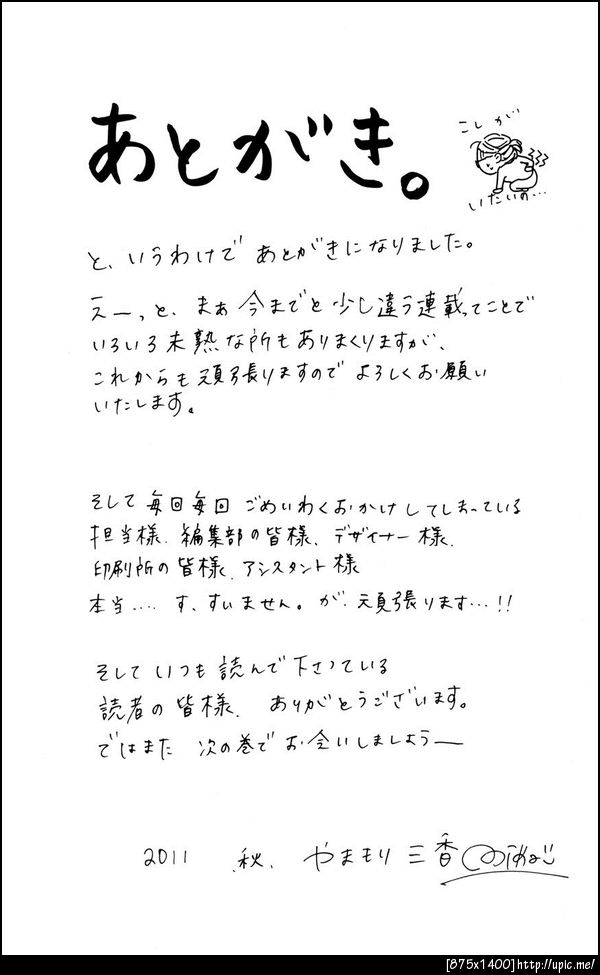 あとがき。
こしが
いたいの…
と、いうわけで あとがきになりました。
えーっと、まぁ 今までと少し違う連載ってことで
いろいろ未熟な所もありまくりますが、
これからも頑張りますので よろしくお願い
いたします。
そして 毎回毎回 ごめいわくおかけしてしまっている
担当様、編集部の皆様、デザイナー様、
印刷所の皆様、アシスタント様
本当…. す、すいません。が、頑張ります…!!
そして いつも 読んで下さっている
読者の皆様、 ありがとうございます。
ではまた 次の巻で お会いしましょうー
2011 秋、 やまもり三香
[875x1400]http://upic.me/